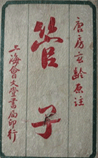 唐房玄齡原註
管子
上海會文堂書局印行